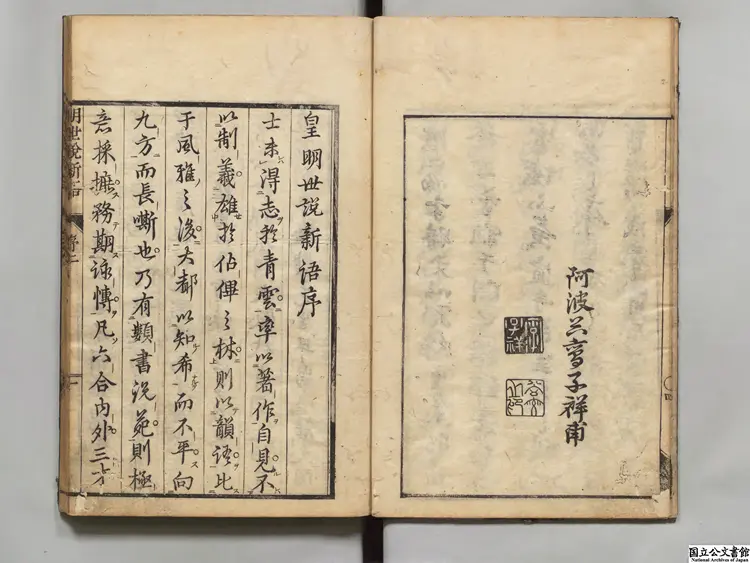 阿波谷鸞子祥甫
皇明世説新語序
士未得志於青雲率以著作自見不
以制義雄於佔俾之林則以韻語比
于風雅之後大都以知希而不平向
九方而長嘶也乃有類書説苑則極
意採摭務期該慱凡六合内外三才
明世說新語
国立公文書館
National Archives of Japan